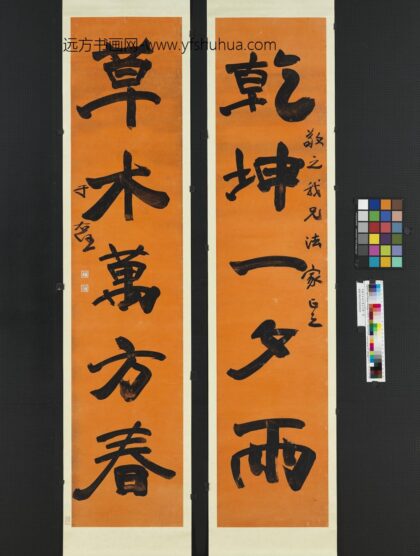 远方书画网-www.yfshuhua.com
乾坤一夕雨
敬之我兄法家正之
草木萬方春
于右任